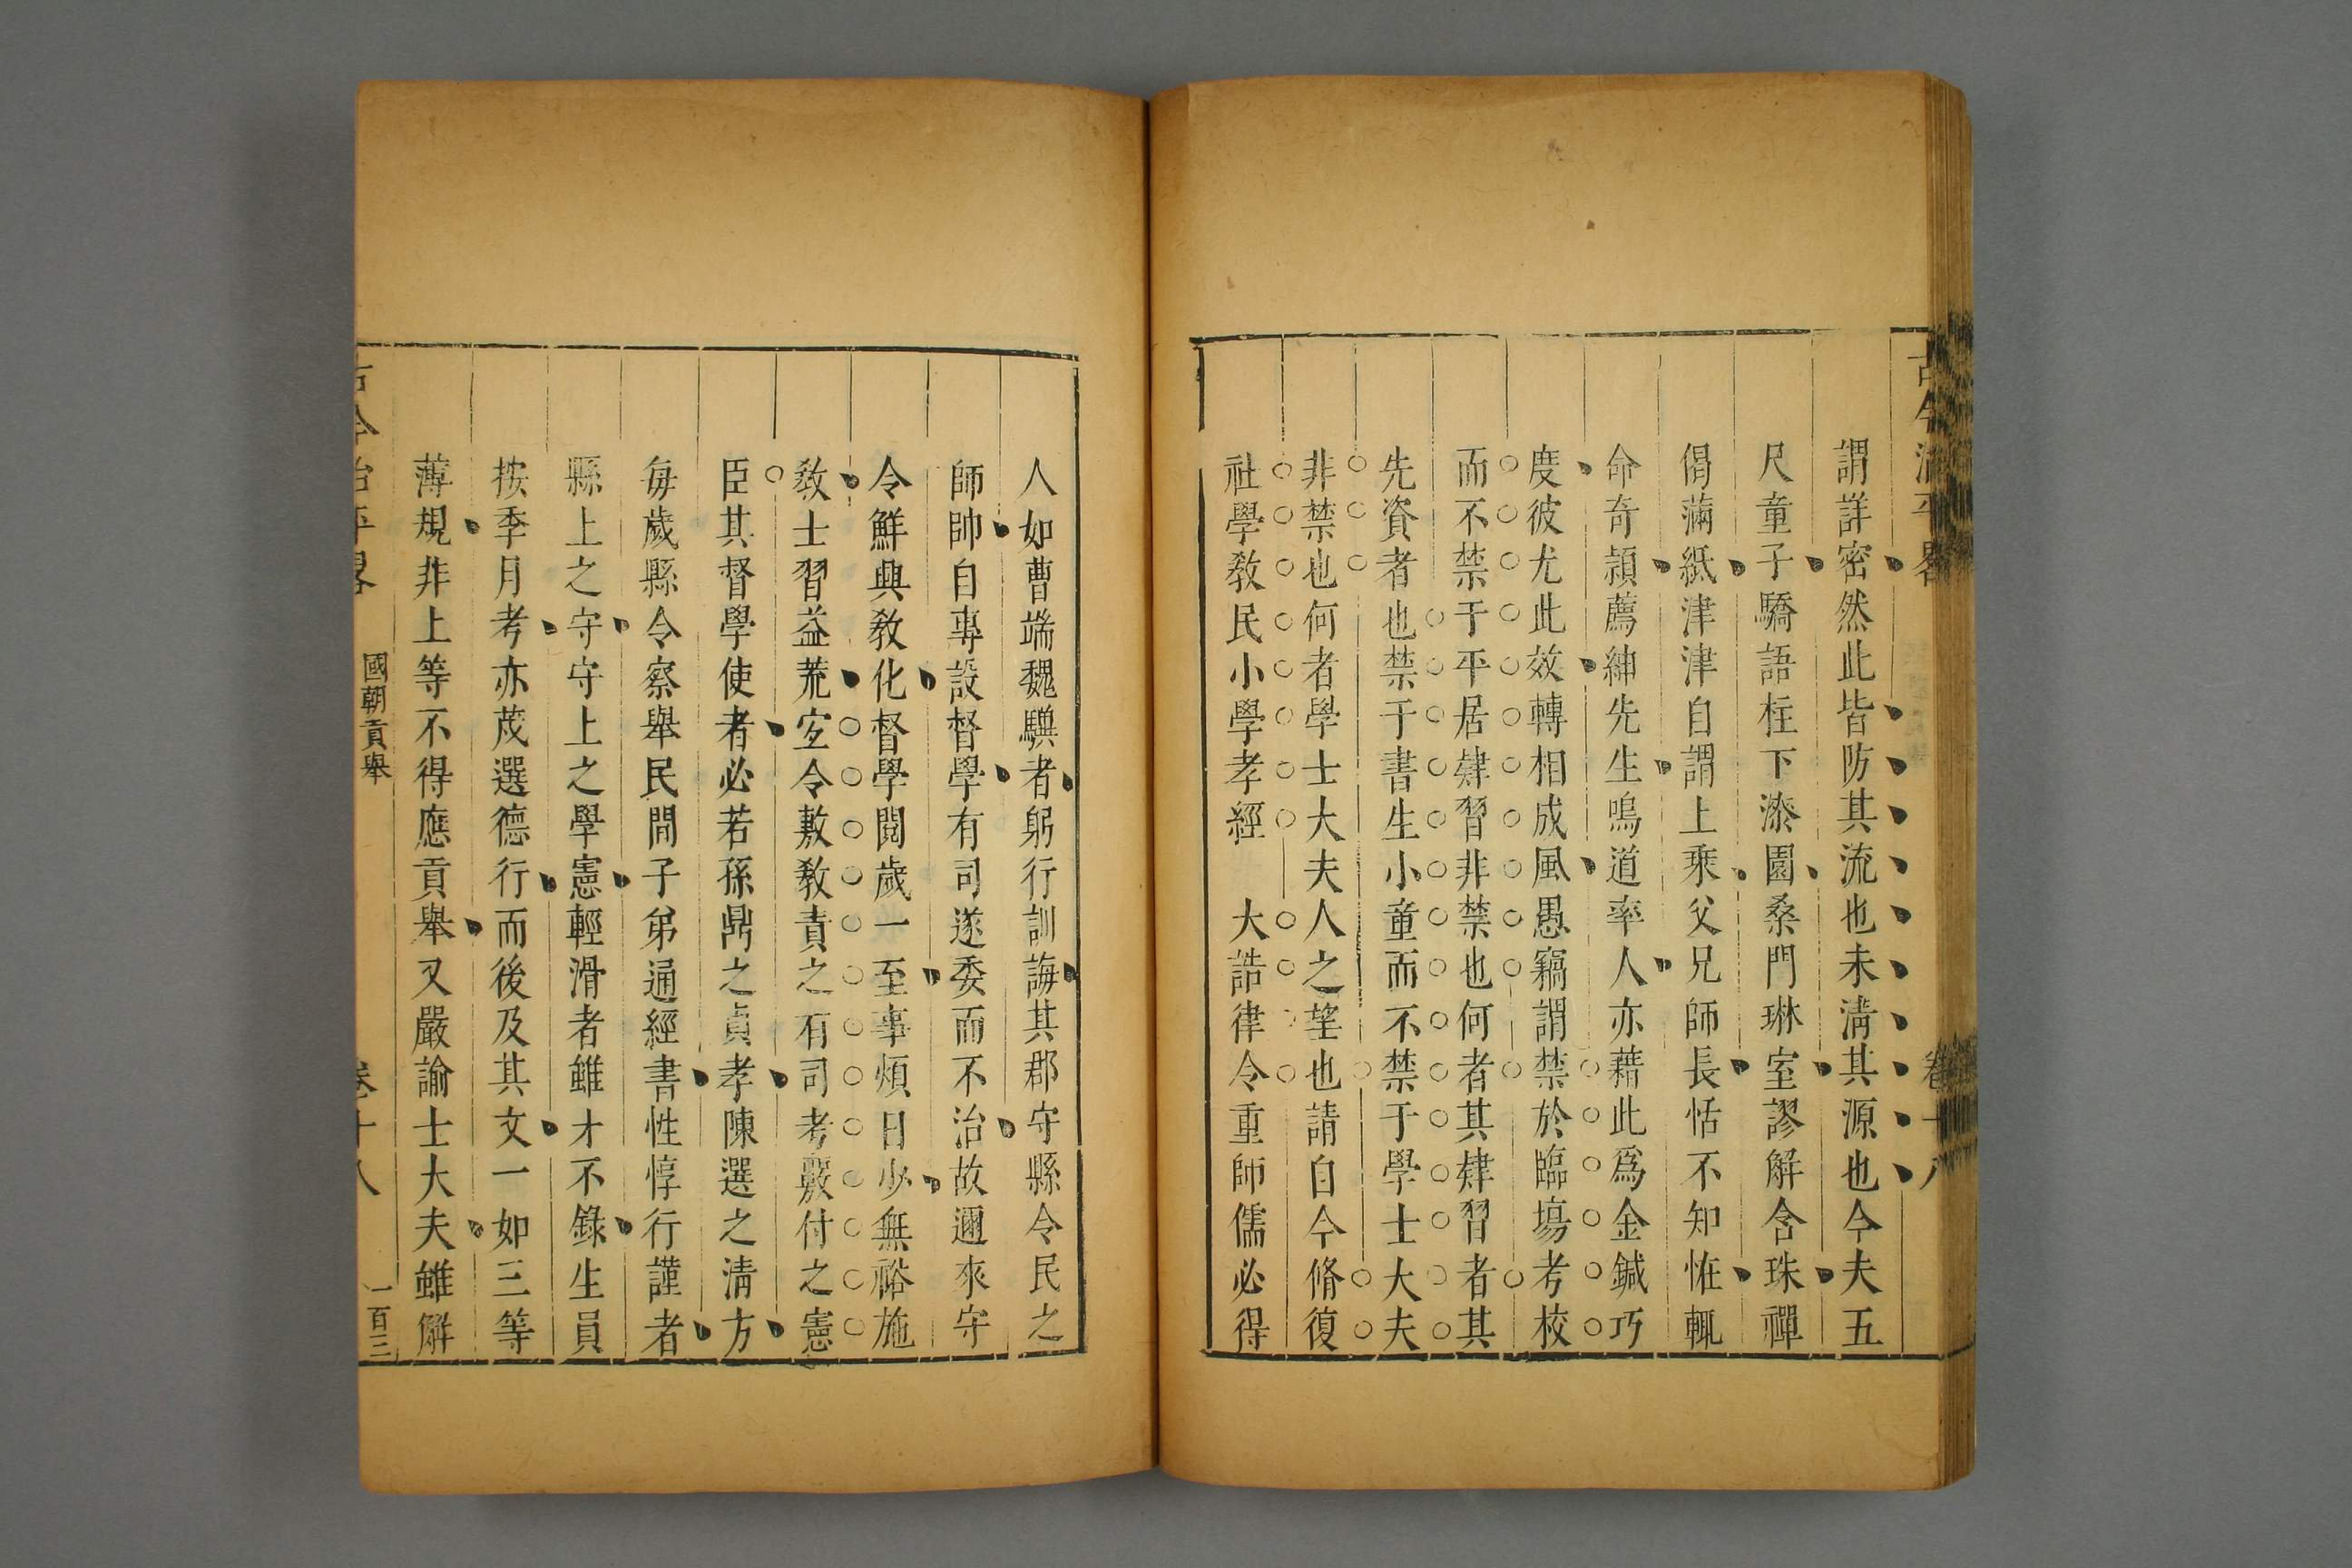 古今治平畧 卷十八
謂詳密然此皆防其流也未淸其源也今夫五
尺童子驕語柱下漆園桑門琳室謬解含珠禪
偈滿紙津津自謂上乘父兄師長恬不知恠輒
命奇頴薦紳先生鳴道率人亦藉此爲金鍼巧
度彼尤此效轉相成風愚竊謂禁於臨塲考校
而不禁于平居肄習非禁也何者其肄習者其
先資者也禁于書生小童而不禁于學士大夫
非禁也何者學士大夫人之望也請自今脩復
社學敎民小學孝經 大誥律令重師儒必得
人如曹端魏驥者躬行訓誨其郡守縣令民之
師帥自專設督學有司遂委而不治故邇來守
令鮮興敎化督學閱歲一至事煩日少無裕施
敎士習益荒宐令敷敎責之有司考覈付之憲
臣其督學使者必若孫鼎之貞孝陳選之淸方
毎歲縣令察舉民間子弟通經書性惇行謹者
縣上之守守上之學憲輕滑者雖才不錄生員
按季月考亦茂選德行而後及其文一如三等
薄規非上等不得應貢舉又嚴諭士大夫雖解
古今治平畧 國朝貢舉 卷十八 一百三